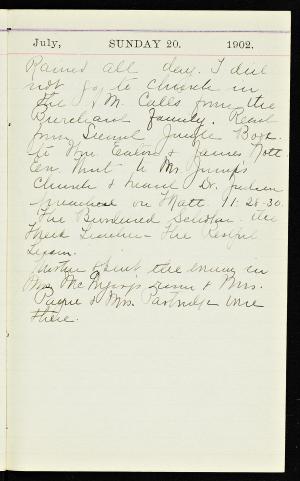 July, SUNDAY 20. 1902.
Rained all day. I did
not go to church in
the A. M. Calls from the
Burchard Family. Read
from Second Jungle Book
to Wm Eaton & James Nott.
Eve. Went to Mr.
Church & heard Dr.
preached on Matt 11.28-30.
The Burdened Scholar. The
Meek Teacher - The Restful
Lesson.
Mother spent the evening in
Mrs Mc room & Mrs.
Payne & Mrs. Partridge were
there.